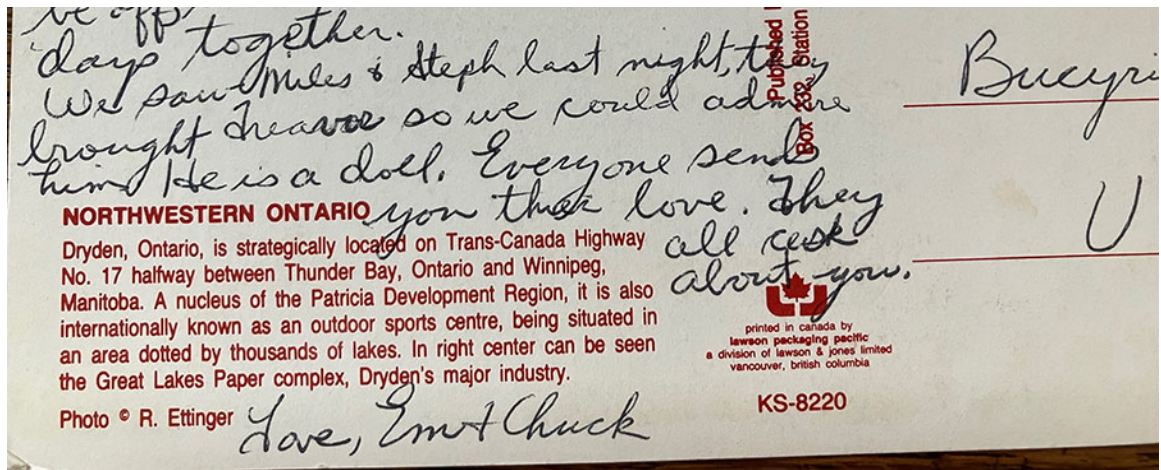 be off
days together.
We saw Miles & Steph last night, they
brought Treavor so we could admire
him. He is a doll. Everyone sends
you their love. They
all ask
about you.
NORTHWESTERN ONTARIO
Dryden, Ontario, is strategically located on Trans-Canada Highway
No. 17 halfway between Thunder Bay, Ontario and Winnipeg,
Manitoba. A nucleus of the Patricia Development Region, it is also
internationally known as an outdoor sports centre, being situated in
an area dotted by thousands of lakes. In right center can be seen
the Great Lakes Paper complex, Dryden's major industry.
Photo © R. Ettinger
Love, Em + Chuck
Published
Box 232, Station
printed in canada by
lawson packaging pacific
a division of lawson & jones limited
vancouver, british columbia
KS-8220
Bucyr
U